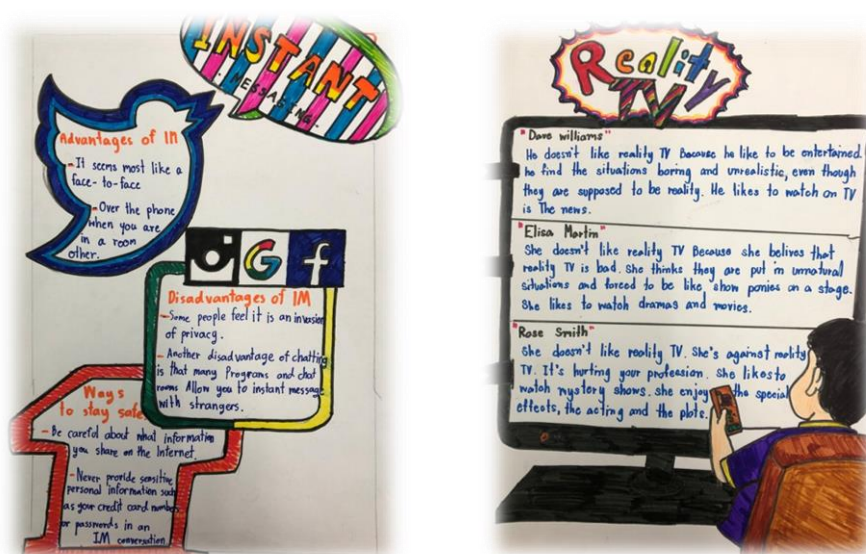 INSTANT
MESSAGING.
Advantages of IM
- It seems most like a
face-to-face
- Over the phone
when you are
in a room
other.
G f
Disadvantages of IM
- Some people feel it is an invasion
of privacy.
- Another disadvantage of chatting
is that many Programs and chat
rooms Allow you to instant message
with strangers.
Ways
to stay safe
- Be careful about what information
you share on the Internet.
- Never provide sensitive
personal information such
as your credit card number
or passwords in an
IM conversation
Reality
TV
"Dave williams"
He doesn't like reality TV Because he like to be entertained.
he find the situations boring and unrealistic, even though
they are supposed to be reality. He likes to watch on TV
is The news.
"Elisa Martin"
She doesn't like reality TV Because she belives that
reality TV is bad. She thinks they are put in unnatural
situations and forced to be like show ponies on a stage.
She likes to watch dramas and movies.
"Rose Smith"
She doesn't like reality TV. She's against reality
TV. It's hurting your profession. She likes to
watch mystery shows. She enjoy the special
effects, the acting and the plots.